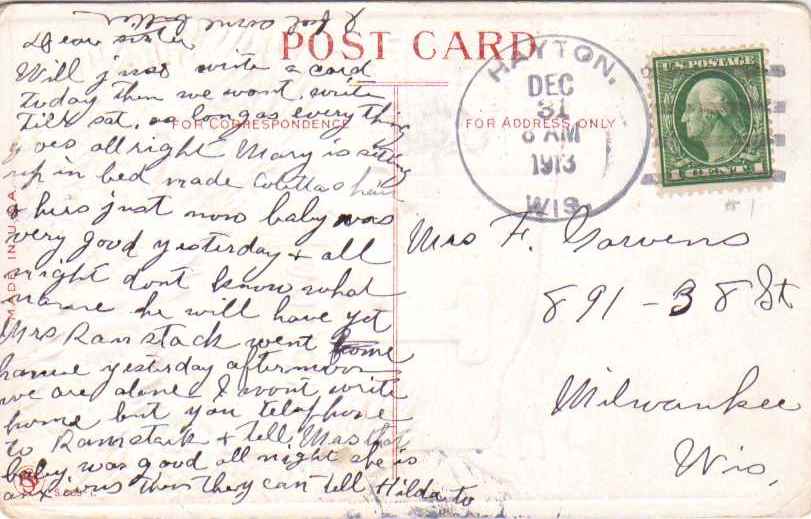 I feel some better
POST CARD
Dear sister
Will jus write a card
today then we wont write
till sat. as long as everything
FOR CORRESPONDENCE
FOR ADDRESS ONLY
goes all right Mary is sitting
up in bed made Colettas hair
& hers just now baby was
very good yesterday & all
night dont know what
name he will have yet
Mrs Ramstack went home
home yesterday afternoon
we are alone I wont write
home but you telephone
to Ramstack & tell Mrs that
baby was good all night she is
anxious then they can tell Hilda to
MADE IN U.S.A.
HAYTON,
DEC
31
8 AM
1913
WIS.
U.S. POSTAGE
1 CENT 1
#1
Mrs F. Garvens
891-38 St
Milwaukee
Wis.